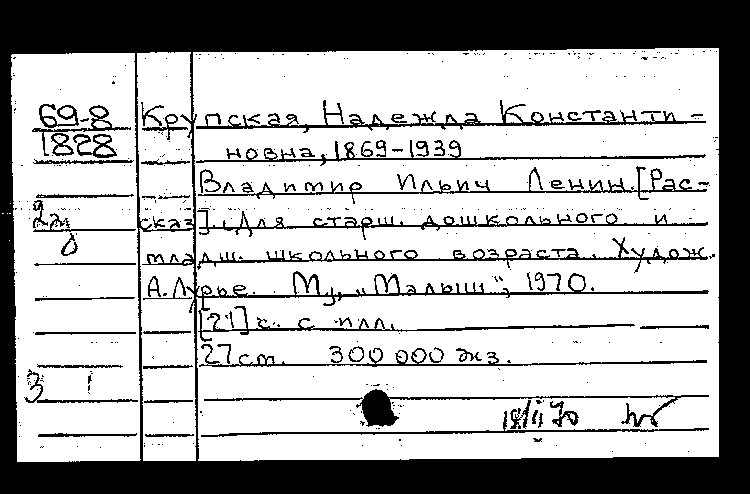 69-8
1828
Крупская, Надежда Константи-
новна, 1869-1939
Владимир Ильич Ленин. [Рас-
сказ]. Для старш. дошкольного и
младш. школьного возраста. Худож.
А. Лурье. М., "Малыш", 1970.
[21] с. с илл.
27 см. 300 000 экз.
3 1
18/II 70